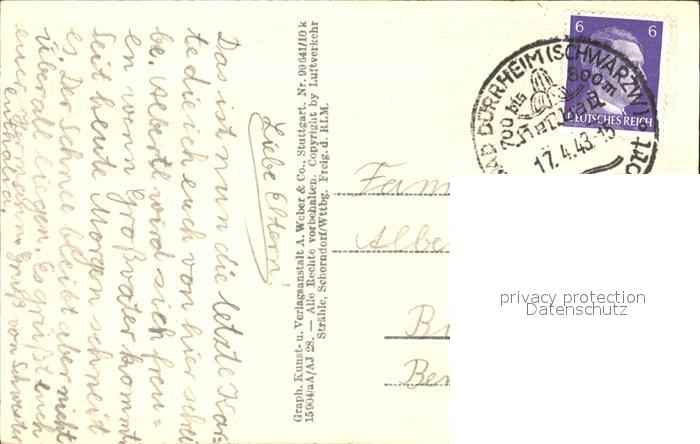 Liebe Eltern!
Das ist nun die letzte Kar=
te die ich euch von hier schrei
be. Albertle wird sich freu=
en wenn Großvater kommt
Seit heute Morgen schneit
es. Der Schnee bleibt aber nicht
überall liegen. Es grüßt euch
euer Hermann. Gruß von Schwester
Graph. Kunst- u. Verlagsanstalt A. Weber & Co., Stuttgart. Nr. 99641/10 k
15904/aA/AJ 28. — Alle Rechte vorbehalten. Copyright by Luftverkehr
Strähle, Schorndorf/Wttbg. Freig. d. RLM.
6 6
DEUTSCHES REICH
BAD DÜRRHEIM (SCHWARZW)
700 bis 800m
Heilbad
17.4.43-15
Fam
Albe
B
Ber
privacy protection
Datenschutz